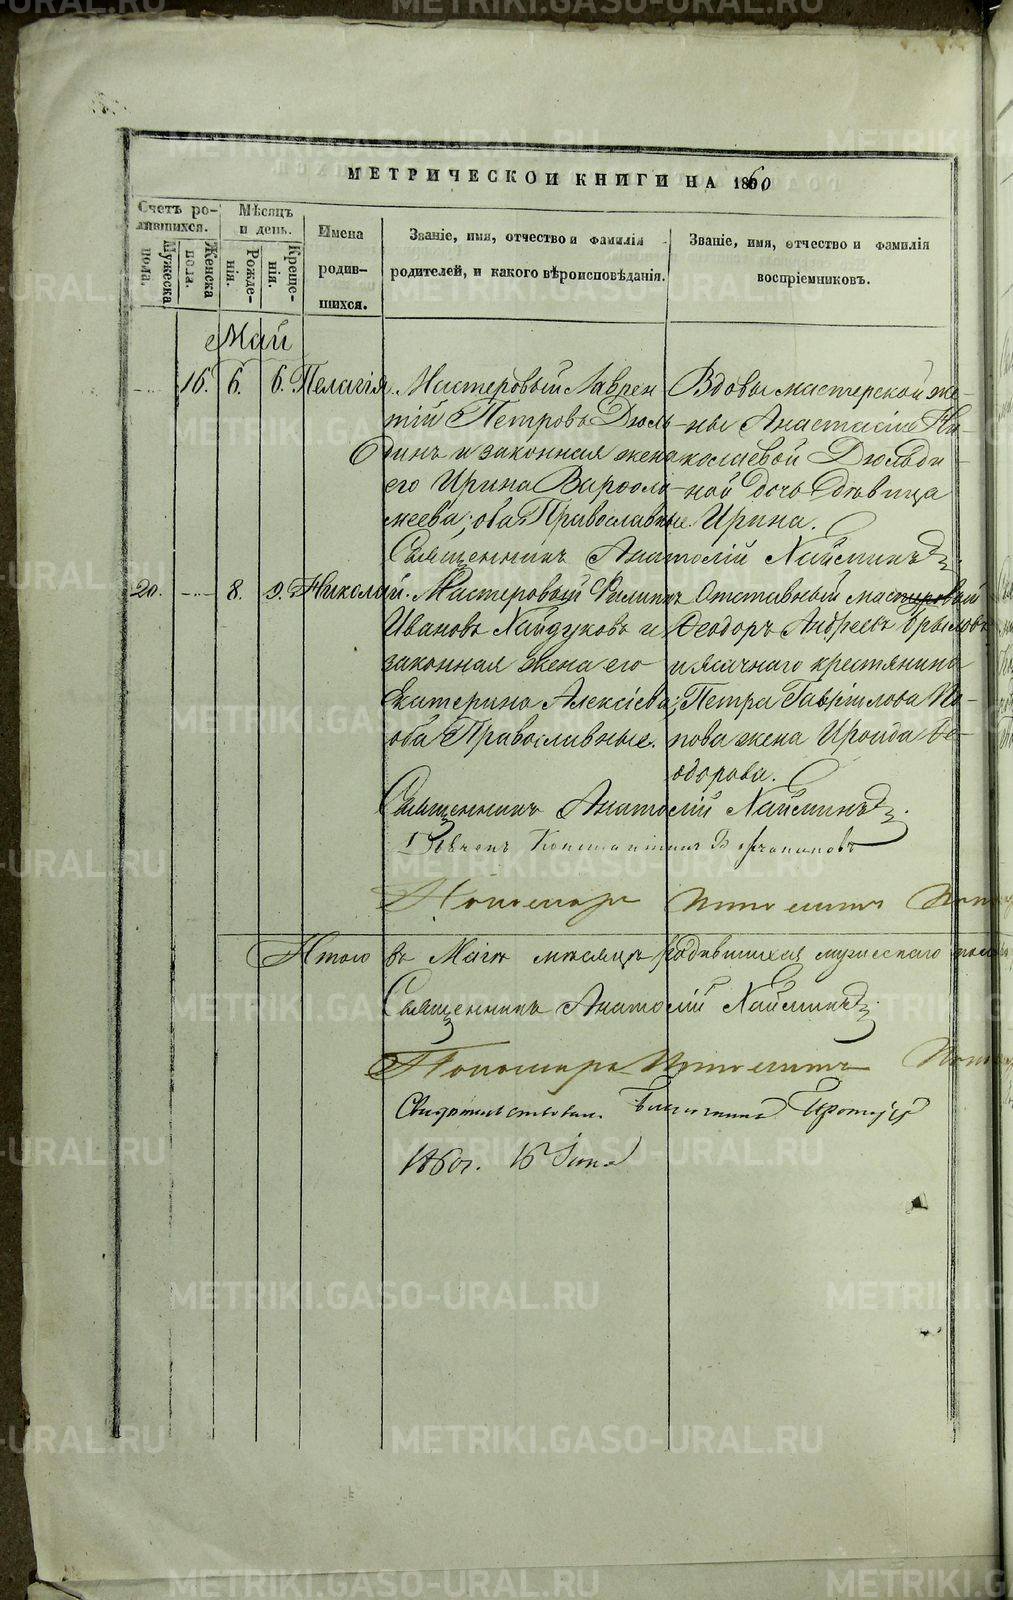 МЕТРИЧЕСКОЙ КНИГИ НА 1860
Счетъ родившихся.
Мѣсяцъ и день.
Имена родившихся.
Званіе, имя, отчество и фамилія родителей, и какого вѣроисповѣданія.
Званіе, имя, отчество и фамилія воспріемниковъ.
Мужеска пола.
Женска пола.
Рожденія.
Крещенія.
Май
16. 6. 6. Пелагія.
Мастеровый Лаврен
тій Петровъ Дюль
динъ и законная жена
его Ирина Варѳоло
меева; оба Православные.
Вдовы мастерской же-
ны Анастасіи Ни-
колаевой Дюльди-
ной дочь дѣвица
Ирина.
Священникъ Анатолій Хайминъ
20. 8. 9. Николай.
Мастеровый Филиппъ
Ивановъ Хайдуковъ и
законная жена его
Екатерина Алексіева;
оба Православные.
Отставный мастеровой
Ѳеодоръ Андреевъ Брыловъ
и ясачнаго крестянина
Петра Гавріилова По-
пова жена Ироида Ѳе-
одорова.
Священникъ Анатолій Хайминъ
Константинъ
Пономарь
Итого въ Маіѣ мѣсяцѣ родившихся мужескаго пола
Священникъ Анатолій Хайминъ
Пономарь
Свидѣтельствовалъ Благочинный Протоіерей
1860 г. 16 Іюня